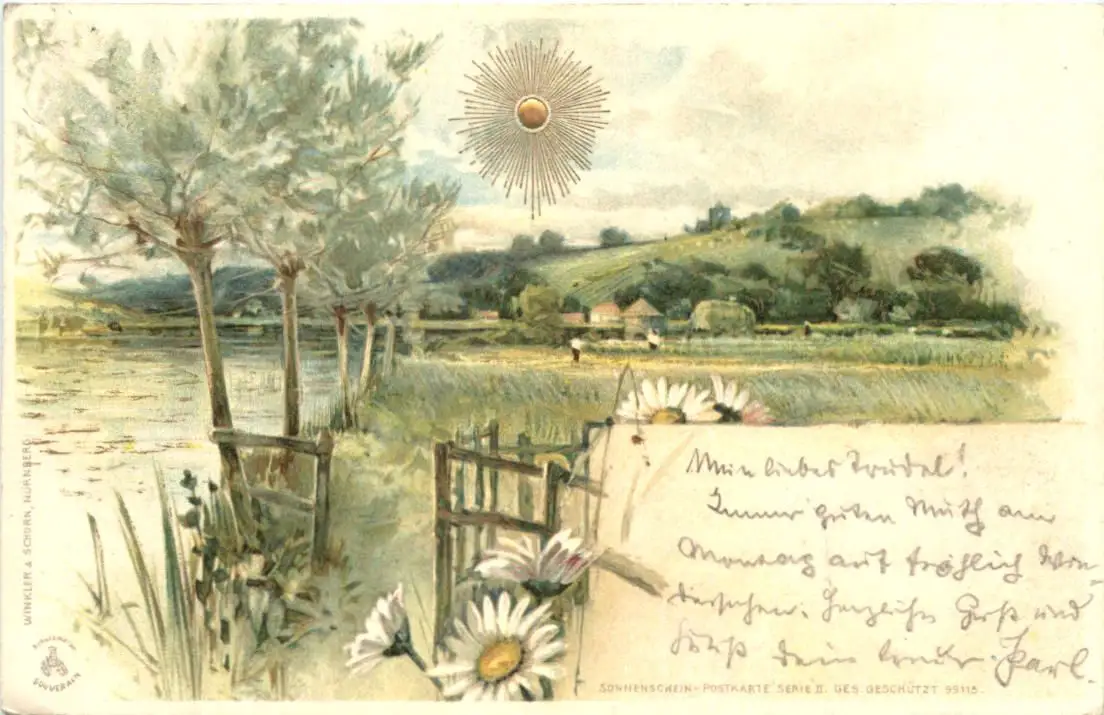 Mein liebes Trudel!
Immer guten Muth am
Montag auf fröhlich Wie-
dersehen. Herzliche Gruß und
Kuß dein treuer Karl.
SONNENSCHEIN-POSTKARTE SERIE II. GES. GESCHÜTZT 99115.
WINKLER & SCHORN, NÜRNBERG
SOUVERAIN